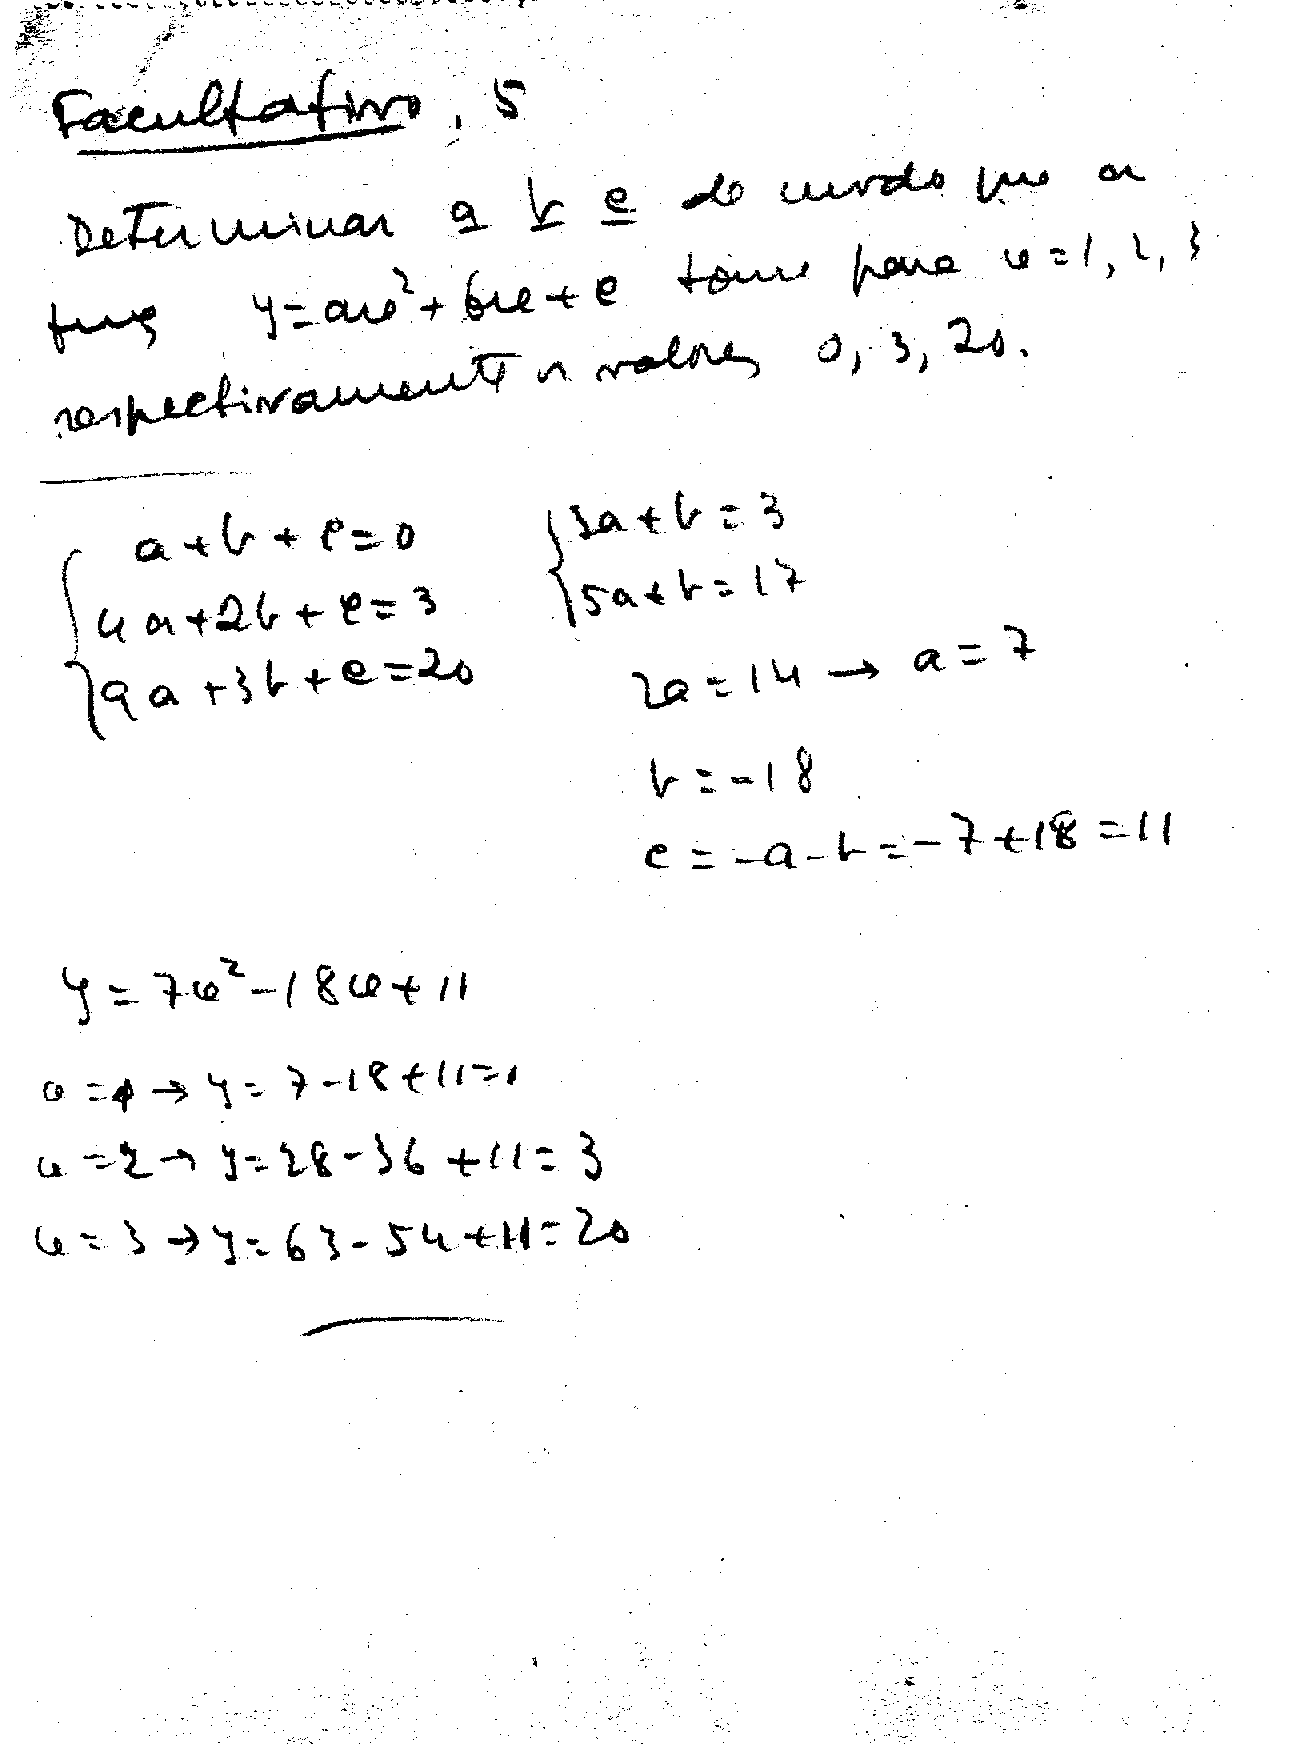 Facultativo, 5
Determinar a b c de modo que a
funç y=ax²+bx+c tome para x=1, 2, 3
respectivamente os valores 0, 3, 20.
a+b+c=0
4a+2b+c=3
9a+3b+c=20
3a+b=3
5a+b=17
2a=14 → a=7
b=-18
c=-a-b=-7+18=11
y=7x²-18x+11
x=1 → y=7-18+11=0
x=2 → y=28-36+11=3
x=3 → y=63-54+11=20